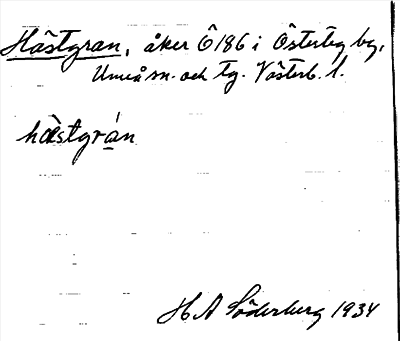 Hästgran, åker Ö186 i Österteg by,
Umeå sn. och tg. Västerb. l.
hästgràn
H A Söderberg 1934